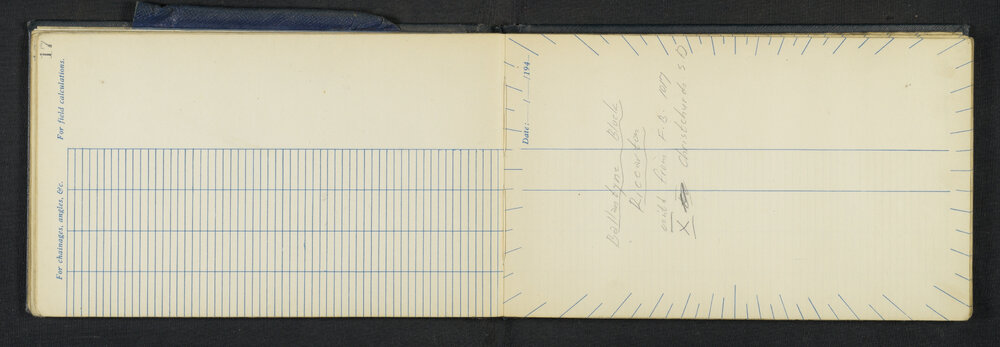 17
For field calculations.
For chainages, angles, &c.
Date: / /194
Ballantyne Block
Riccarton
contd from F.B. 1017
X Christchurch S D